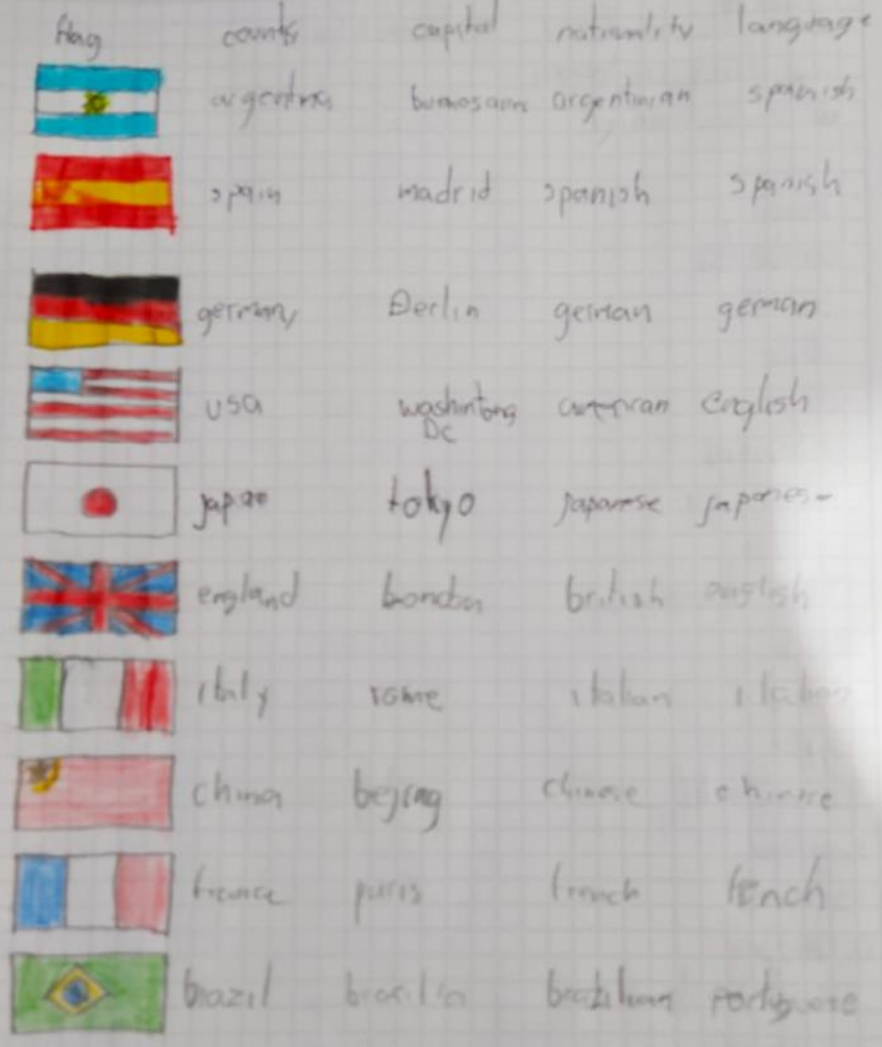 flag country capital nationality language
argentina buenosaires argentinian spanish
spain madrid spanish spanish
germany Berlin german german
usa washintong american english
DC
japan tokyo japanese japanese
england london british english
italy rome italian italian
china bejing chinese chinese
france paris french fench
brazil brasilia brazilian portuguese